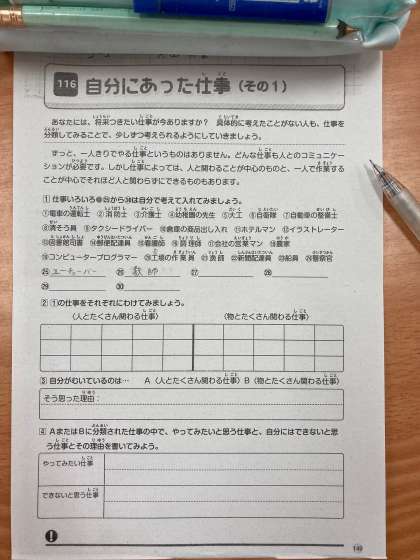 116 自分にあった仕事(その1)
あなたには、将来つきたい仕事が今ありますか? 具体的に考えたことがない人も、仕事を
分類してみることで、少しずつ考えられるようにしていきましょう。
ずっと、一人きりでやる仕事というものはありません。どんな仕事も人とのコミュニケー
ションが必要です。しかし仕事によっては、人と関わることが中心のものと、一人で作業する
ことが中心でそれほど人と関わらずにできるものもあります。
① 仕事いろいろ㉕から㉚は自分で考えて入れてみましょう。
①電車の運転士 ②消防士 ③介護士 ④幼稚園の先生 ⑤大工 ⑥自衛隊 ⑦自動車の整備士
⑧清そう員 ⑨タクシードライバー ⑩倉庫の商品出し入れ ⑪ホテルマン ⑫イラストレーター
⑬図書館司書 ⑭郵便配達員 ⑮看護師 ⑯調理師 ⑰会社の営業マン ⑱農家
⑲コンピュータープログラマー ⑳工場の作業員 ㉑漁師 ㉒新聞配達員 ㉓船員 ㉔警察官
㉕ユーチューバー ㉖教師 ㉗ ㉘
㉙ ㉚
② ①の仕事をそれぞれにわけてみましょう。
(人とたくさん関わる仕事) (物とたくさん関わる仕事)
③ 自分がむいているのは… A(人とたくさん関わる仕事) B(物とたくさん関わる仕事)
そう思った理由:
④ AまたはBに分類された仕事の中で、やってみたいと思う仕事と、自分にはできないと思
う仕事とその理由を書いてみよう。
やってみたい仕事
できないと思う仕事
149